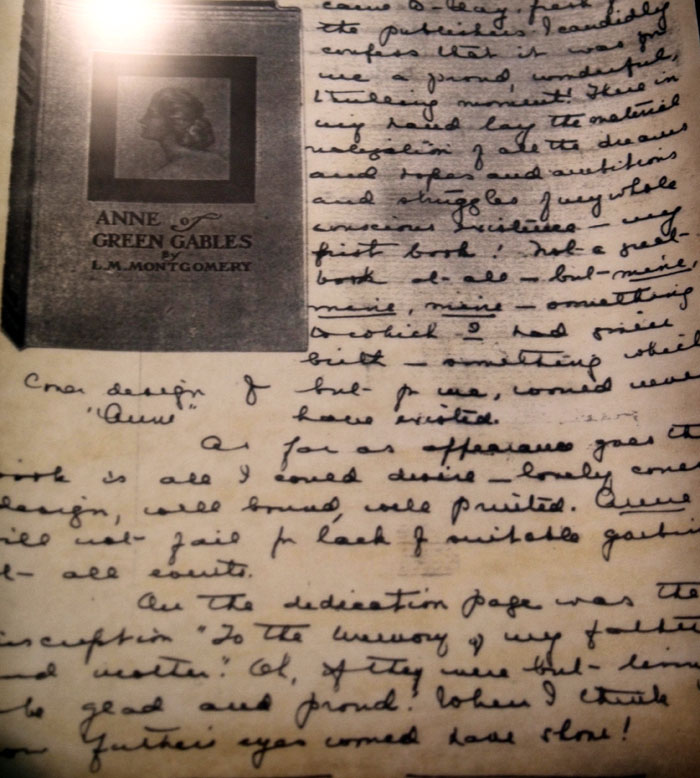 ANNE of
GREEN GABLES
BY
L.M. MONTGOMERY
Cover design of
"Anne"
came to-day, fresh
the publishers. I candidly
confess that it was for
me a proud, wonderful,
thrilling moment! There in
my hand lay the material
realization of all the dreams
and hopes and ambitions
and struggles of my whole
conscious existence — my
first book! Not a great
book at all — but mine,
mine, mine — something
to which I had given
birth — something which
but for me, would never
have existed.
As far as appearance goes th
ook is all I could desire — lovely cove
design, well bound, well printed. Anne
ill not fail for lack of suitable garbin
t all events.
On the dedication page was the
nscription "To the memory of my father
nd mother". Oh, if they were but living
be glad and proud! When I think
ow father's eyes would have shone!